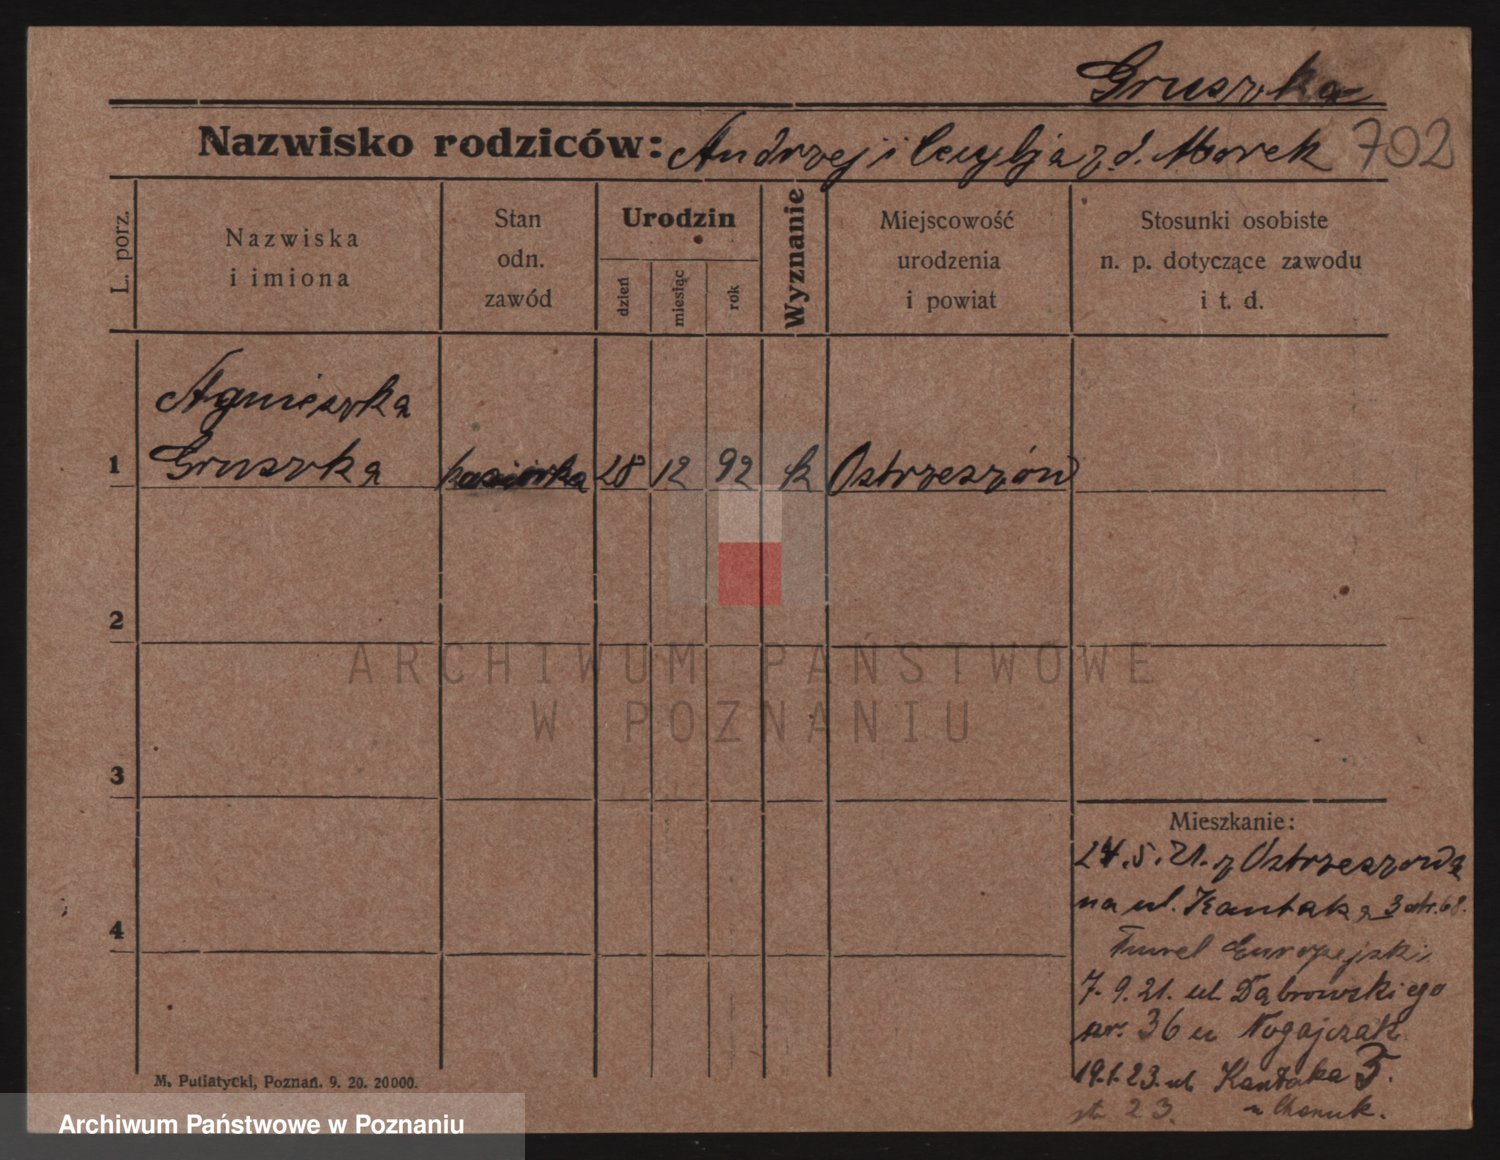 Gruszka
Nazwisko rodziców: Andrzej i Cecylja z d. Marek 702
L. porz.
Nazwiska
i imiona
Stan
odn.
zawód
Urodzin
dzień
miesiąc
rok
Wyznanie
Miejscowość
urodzenia
i powiat
Stosunki osobiste
n. p. dotyczące zawodu
i t. d.
Agnieszka
1 Gruszka 28 12 92 k Ostrzeszów
2
3
4
Mieszkanie:
24.5.21. z Ostrzeszowa
na ul. Kantaka 3 str. 68.
Europejski
7.9.21. ul Dąbrowskiego
nr. 36 u Nogajczak
19.1.23. ul Kantaka 5.
st 23.
M. Putiatycki, Poznań. 9. 20. 20000.
ARCHIWUM PAŃSTWOWE
W POZNANIU
Archiwum Państwowe w Poznaniu